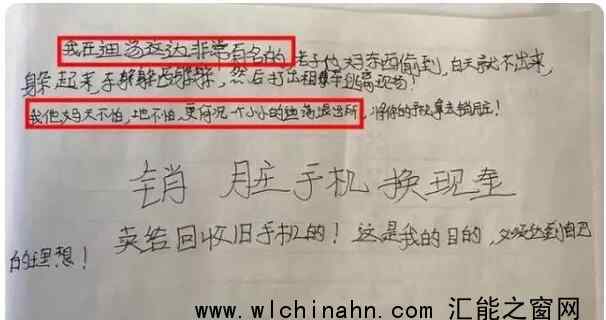 我在迪汤这边非常有名的,老子他妈东西偷到,白天就不出来,
躲起来,手解解西解解,然后打出租车逃离现场!
我他妈天不怕,地不怕,更何况一个小小的迪荡派出所,将你的手机拿去销脏!
销脏手机换现金
卖给回收旧手机的!这是我的目的,必须达到自己
的理想!
www.wlchinahn.com 汇能之窗网